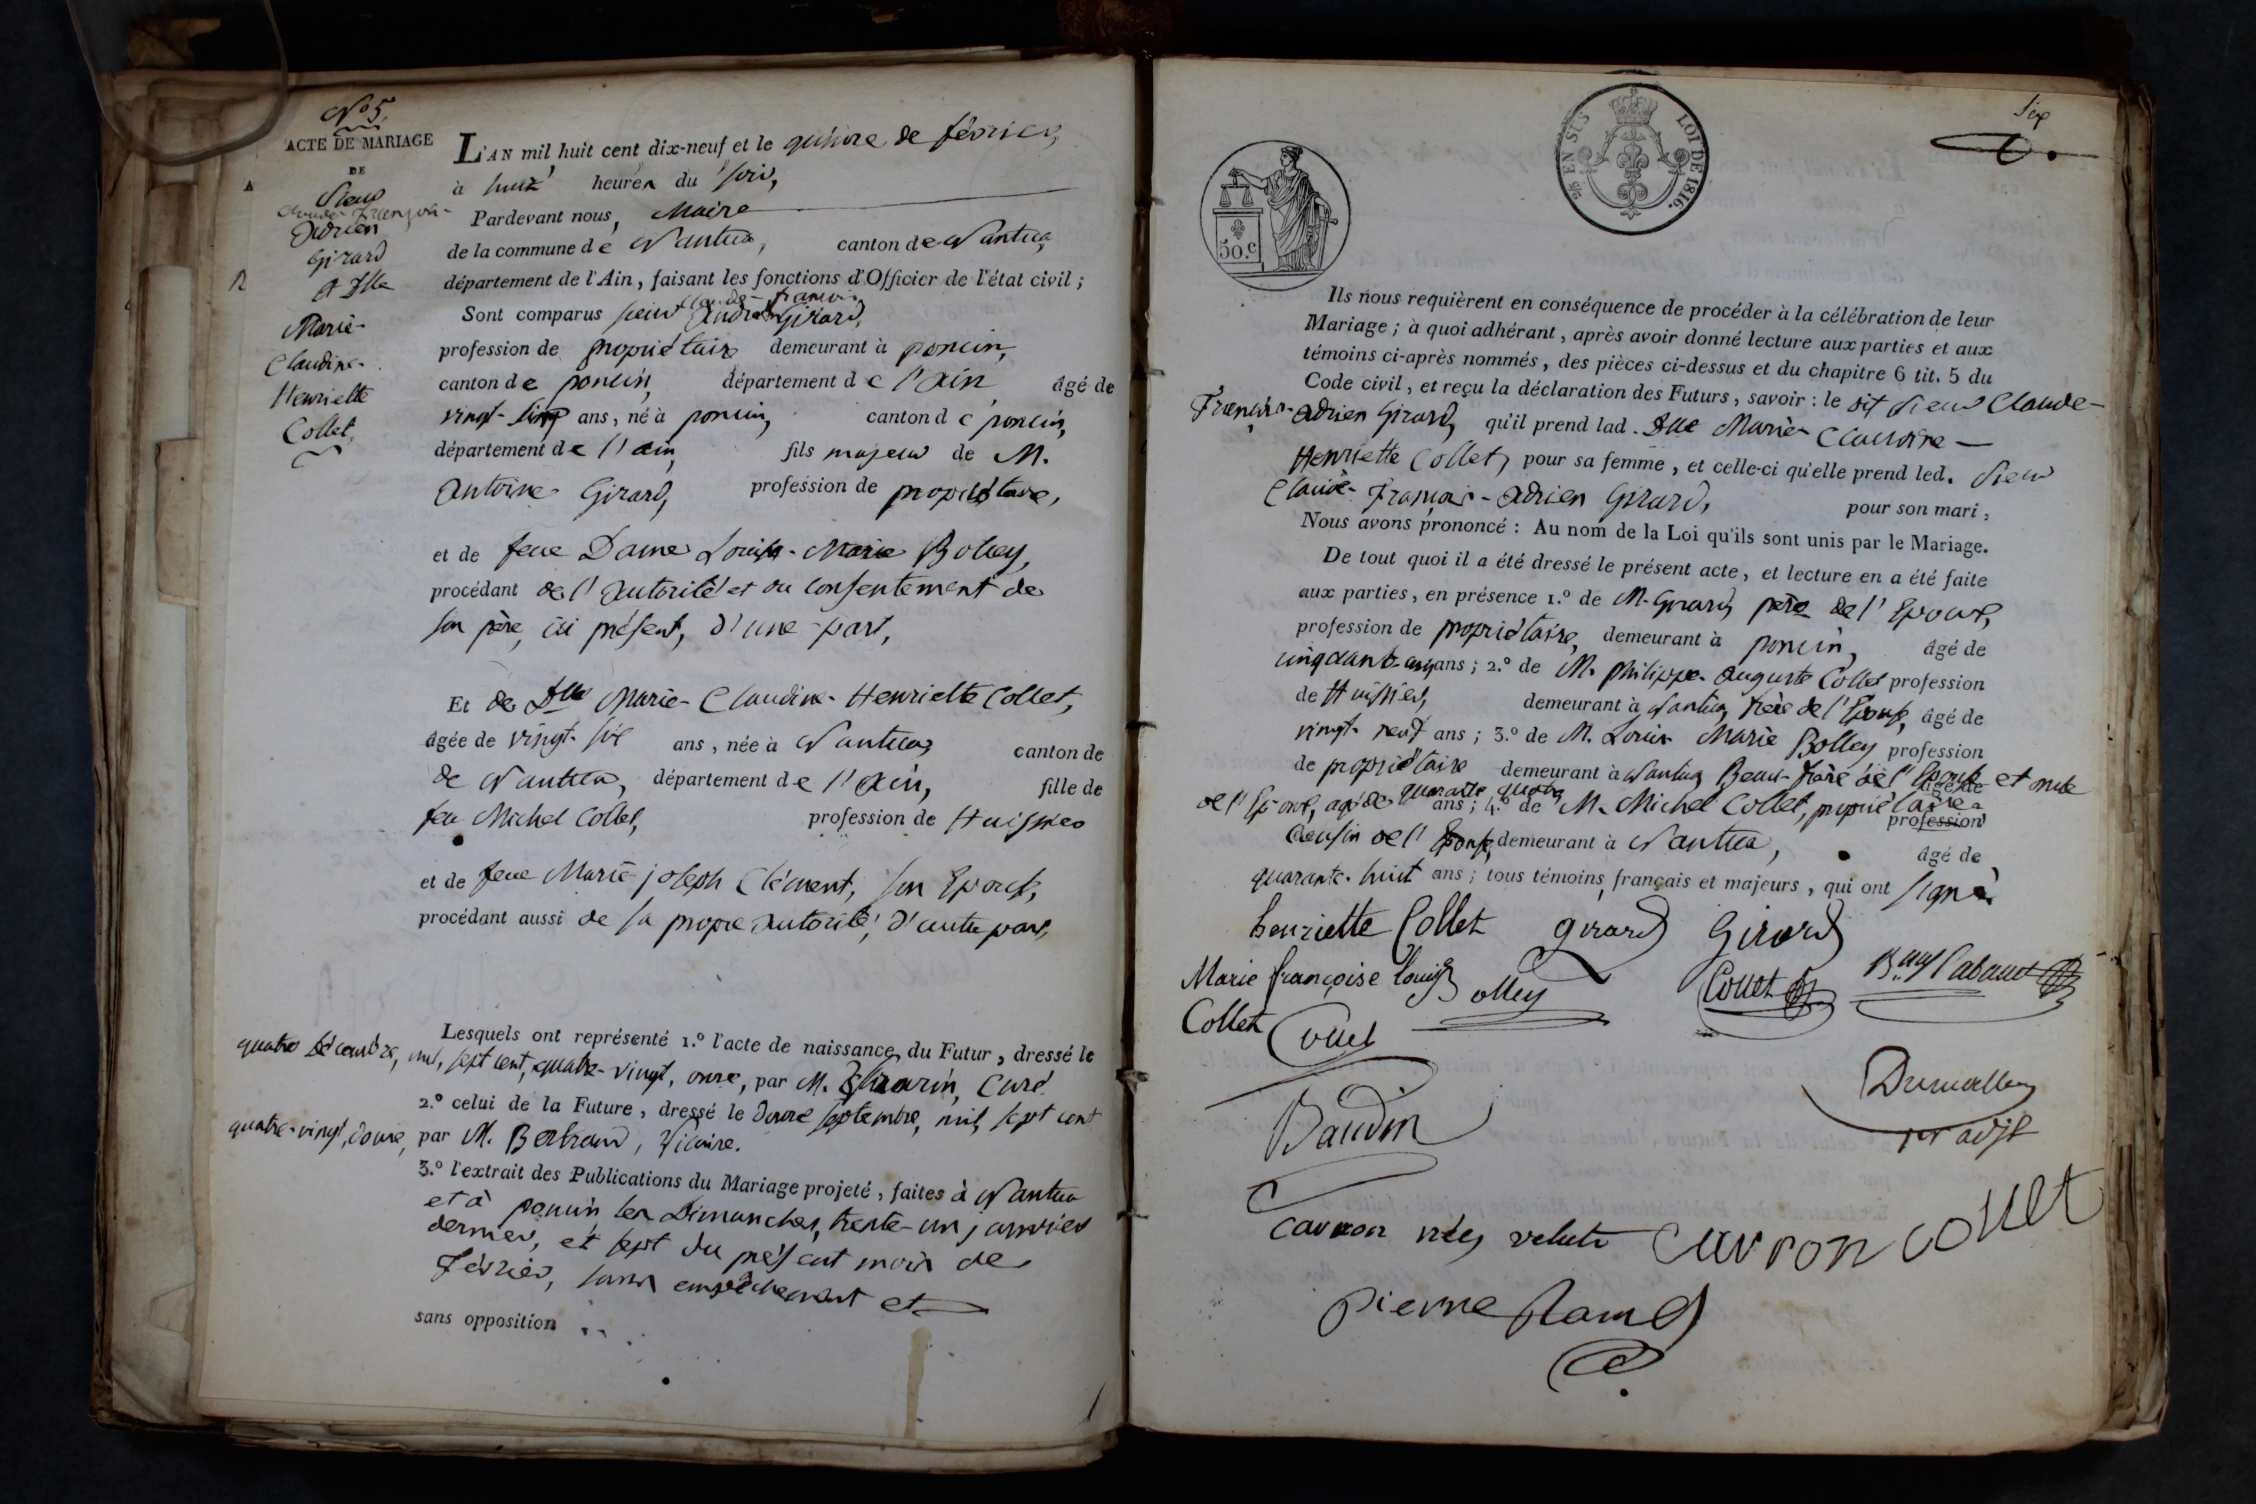 N.o 5.
ACTE DE MARIAGE
DE
Sieur
Claude-François-
Adrien
Girard
et Dlle
Marie-
Claudine-
Henriette
Collet.
L'AN mil huit cent dix-neuf et le quinze de février,
à huit heures du soir,
Pardevant nous, Maire
de la commune de Nantua, canton de Nantua,
département de l'Ain, faisant les fonctions d'Officier de l'état civil ;
Sont comparus sieur Claude-françois Adrien Girard,
profession de propriétaire demeurant à poncin,
canton de poncin, département de l'Ain âgé de
vingt-sept ans, né à poncin, canton de poncin,
département de l'ain, fils majeur de M.
Antoine Girard, profession de propriétaire,
et de feue Dame Louise-Marie Bolley,
procédant de l'autorité et du consentement de
son père, ici présent, d'une part,
Et de Dlle Marie-Claudine-Henriette Collet,
âgée de vingt-six ans, née à Nantua, canton de
de Nantua, département de l'Ain, fille de
feu Michel Collet, profession de Huissier
et de feue Marie-joseph Clément, son Epouse,
procédant aussi de sa propre autorité, d'autre part,
Lesquels ont représenté 1.º l'acte de naissance du Futur, dressé le
quatre Décembre, mil, sept cent, quatre-vingt, onze, par M. curé.
2.º celui de la Future, dressé le douze septembre, mil, sept cent
quatre-vingt, douze, par M. Bertrand, Vicaire.
3.º l'extrait des Publications du Mariage projeté, faites à Nantua
et à poncin les Dimanches, trente-un janvier
dernier, et sept du présent mois de
février, sans empêchement et
sans opposition
Six
50.c
EN SUS LOI DE 1816.
Ils nous requièrent en conséquence de procéder à la célébration de leur
Mariage ; à quoi adhérant, après avoir donné lecture aux parties et aux
témoins ci-après nommés, des pièces ci-dessus et du chapitre 6 tit. 5 du
Code civil, et reçu la déclaration des Futurs, savoir : le dit sieur Claude-
François-Adrien Girard, qu'il prend lad. Dlle Marie-Claudine-
Henriette Collet, pour sa femme, et celle-ci qu'elle prend led. Sieur
Claude-François-Adrien Girard, pour son mari,
Nous avons prononcé : Au nom de la Loi qu'ils sont unis par le Mariage.
De tout quoi il a été dressé le présent acte, et lecture en a été faite
aux parties, en présence 1.º de M. Girard, père de l'Epoux,
profession de propriétaire, demeurant à poncin, âgé de
cinquante ans ; 2.º de M. philippe-Auguste Collet profession
de Huissier, demeurant à Nantua, frère de l'Epouse, âgé de
vingt-neuf ans ; 3.º de M. Louis Marie Bolley profession
de propriétaire demeurant à Nantua, Beau-frère de l'Epouse et oncle
de l'Epoux, agé de quarante quatre ans ; 4.º de M. Michel Collet, propriétaire profession
Cousin de l'Epouse, demeurant à Nantua, âgé de
quarante-huit ans ; tous témoins français et majeurs, qui ont signé.
henriette Collet girard Girard
Marie françoise Louise Bolley Collet
Collet Collet
Baudin
1er adjt
pierre